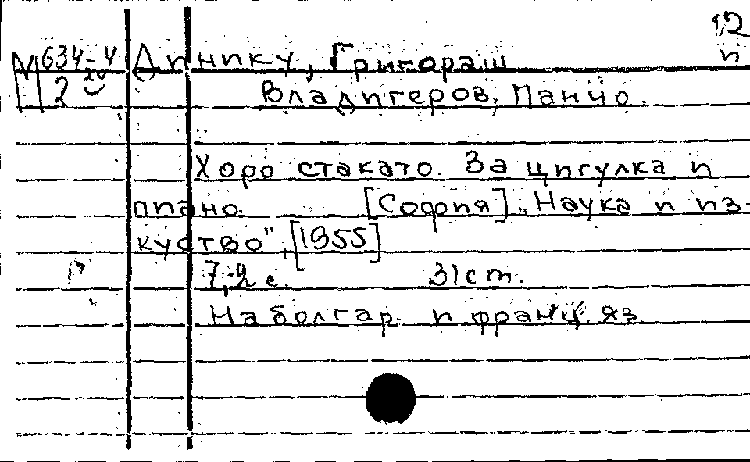 12
М 634-4 Динику, Григораш п
2 Владигеров, Панчо.
Хоро стакато. За цигулка и
пиано. [София] „Наука и из-
куство", [1955]
7, 2 с. 31 cm.
На болгар. и франц. яз.